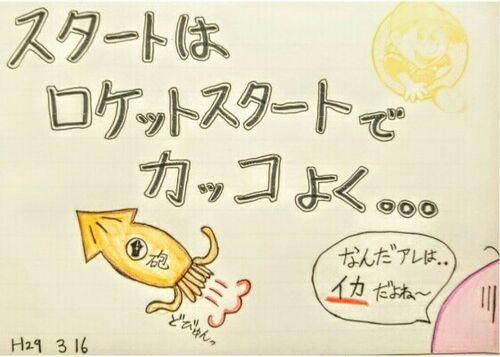 スタートは
ロケットスタートで
カッコよく。。。
砲
どびゅんっ
なんだアレは..
イカだよね〜
H29 3 16